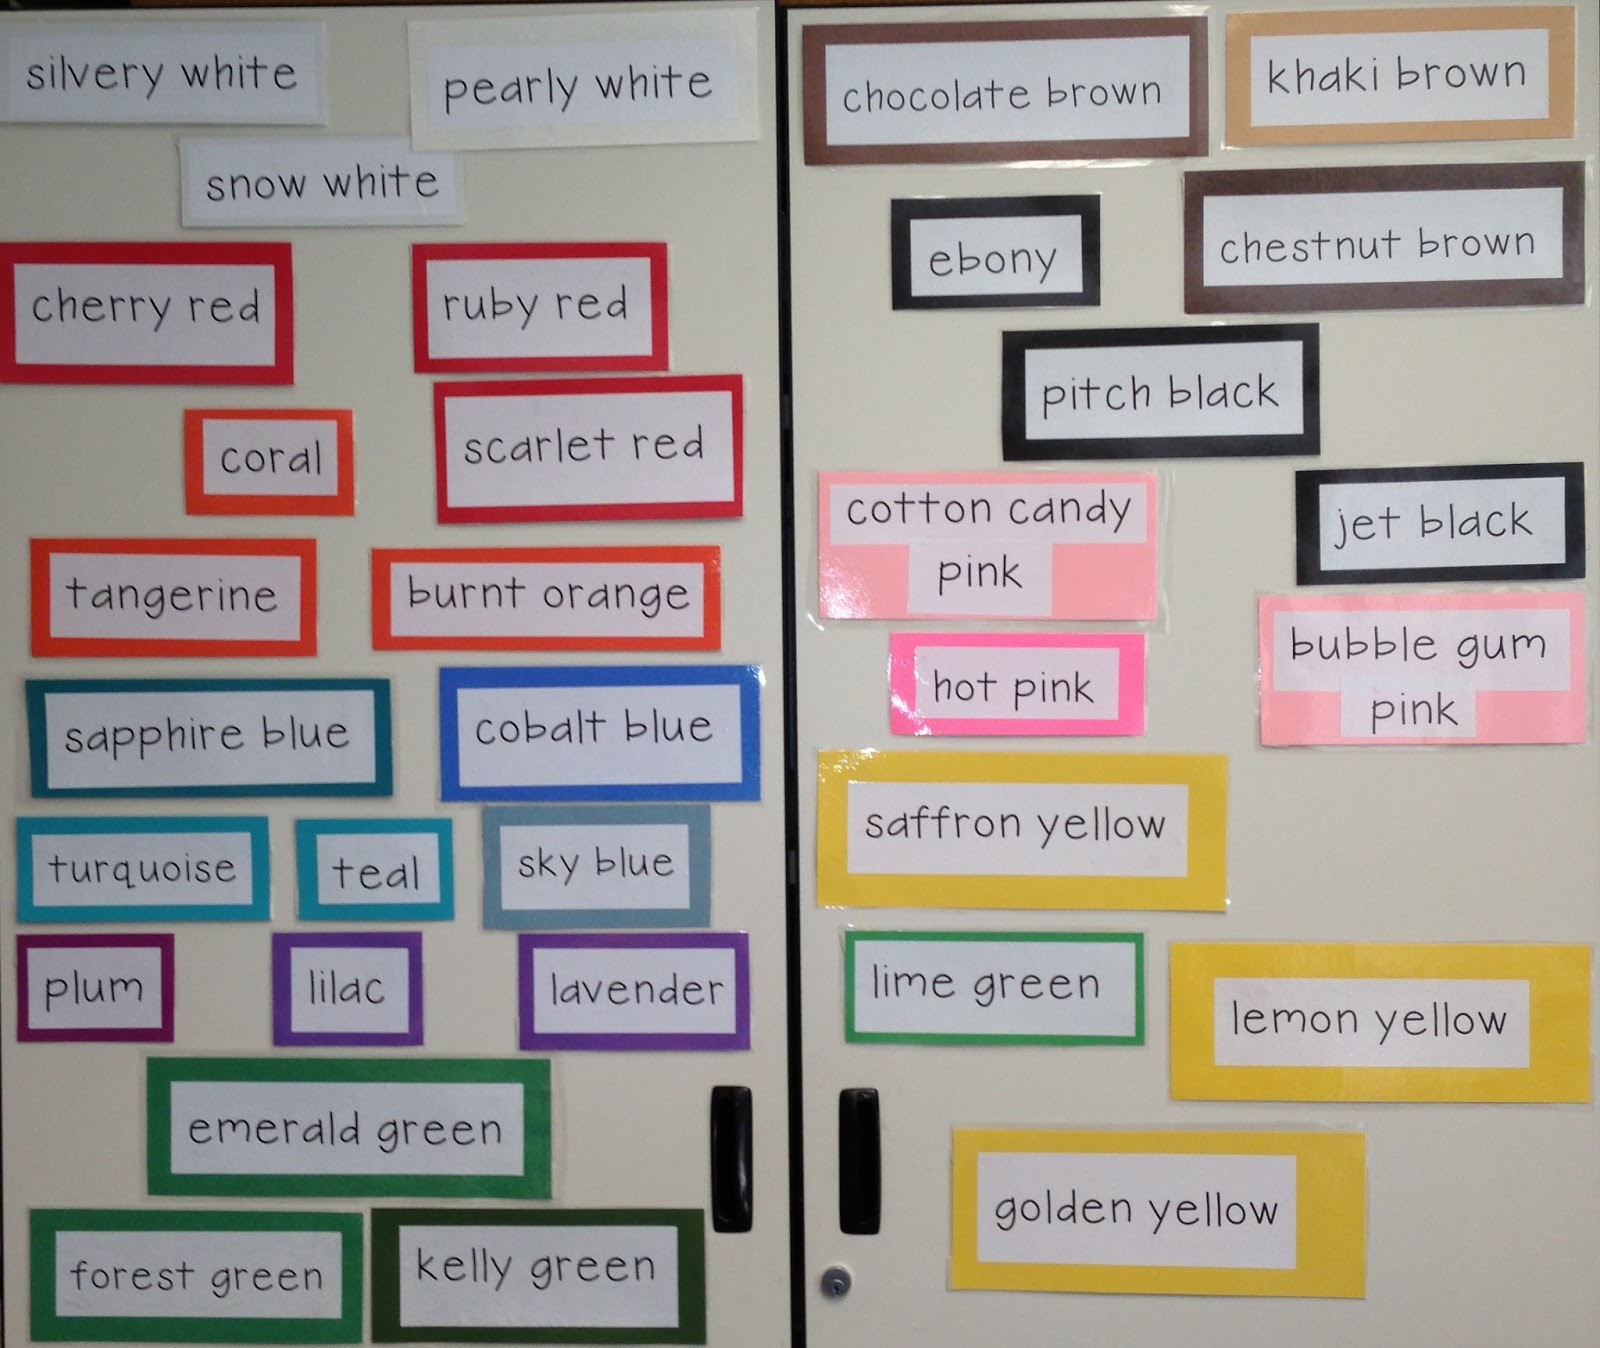 silvery white
pearly white
snow white
cherry red
ruby red
coral
scarlet red
tangerine
burnt orange
sapphire blue
cobalt blue
turquoise
teal
sky blue
plum
lilac
lavender
emerald green
forest green
kelly green
chocolate brown
khaki brown
ebony
chestnut brown
pitch black
cotton candy
pink
jet black
hot pink
bubble gum
pink
saffron yellow
lime green
lemon yellow
golden yellow